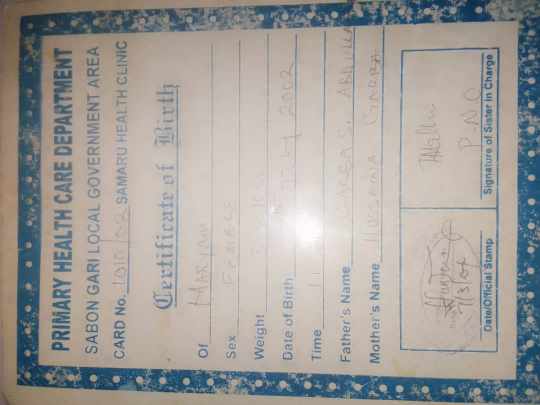 PRIMARY HEALTH CARE DEPARTMENT
SABON GARI LOCAL GOVERNMENT AREA
CARD No. SAMARU HEALTH CLINIC
Certificate of Birth
Of MARYAM
Sex FEMALE
Weight
Date of Birth JULY 2002
Time 11
Father's Name
Mother's Name HUSSAINA GARBA
P.N.O
Date/Official Stamp
Signature of Sister in Charge